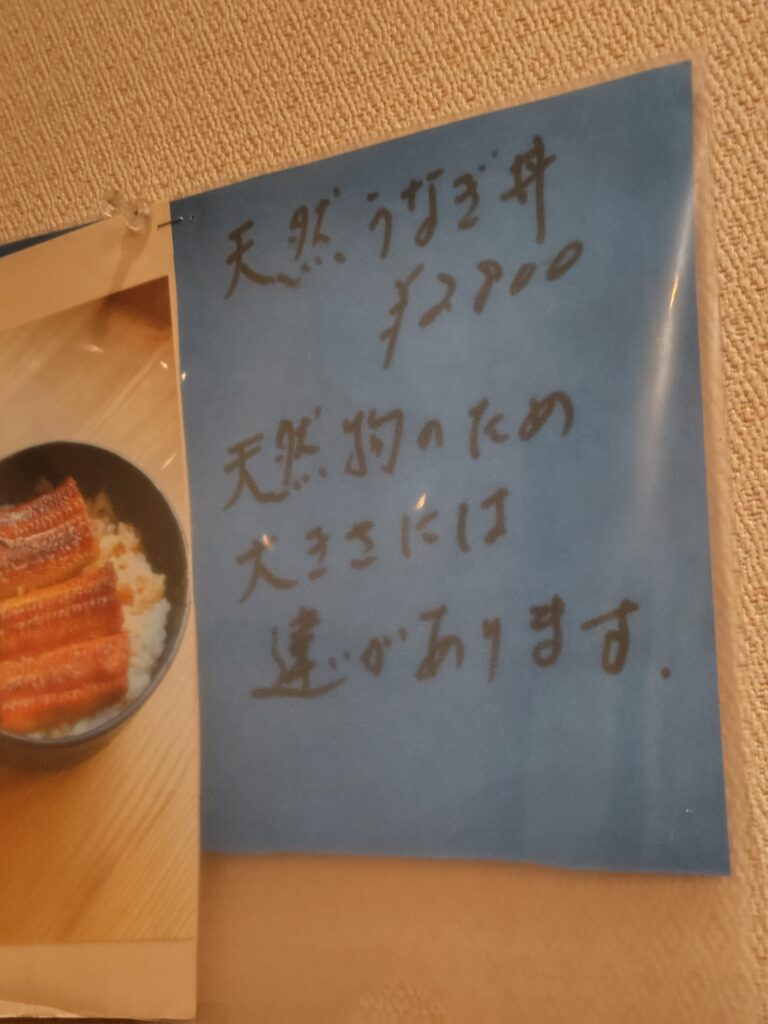 天然うなぎ丼
¥2800
天然物のため
大きさには
違いがあります.